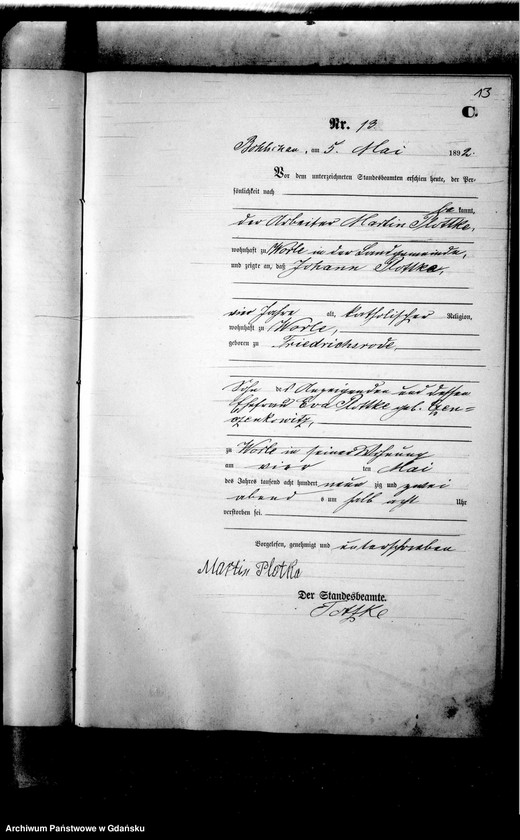 13
C.
Nr. 13
Bohlschau, am 5. Mai 1892.
Vor dem unterzeichneten Standesbeamten erschien heute, der Per-
sönlichkeit nach
be kannt,
der Arbeiter Martin Plottke,
wohnhaft zu Worle in der Landgemeinde,
und zeigte an, daß Johann Plottke,
vier Jahre alt, katholischer Religion,
wohnhaft zu Worle,
geboren zu Friedrichsrode,
Sohn des Anzeigenden und dessen
Ehefrau Eva Plottke geb.
zu Worle in seiner Wohnung
am vier ten Mai
des Jahres tausend acht hundert neun zig und zwei
abend s um halb acht Uhr
verstorben sei.
Vorgelesen, genehmigt und unterschrieben
Martin Plotka
Der Standesbeamte.
Archiwum Państwowe w Gdańsku